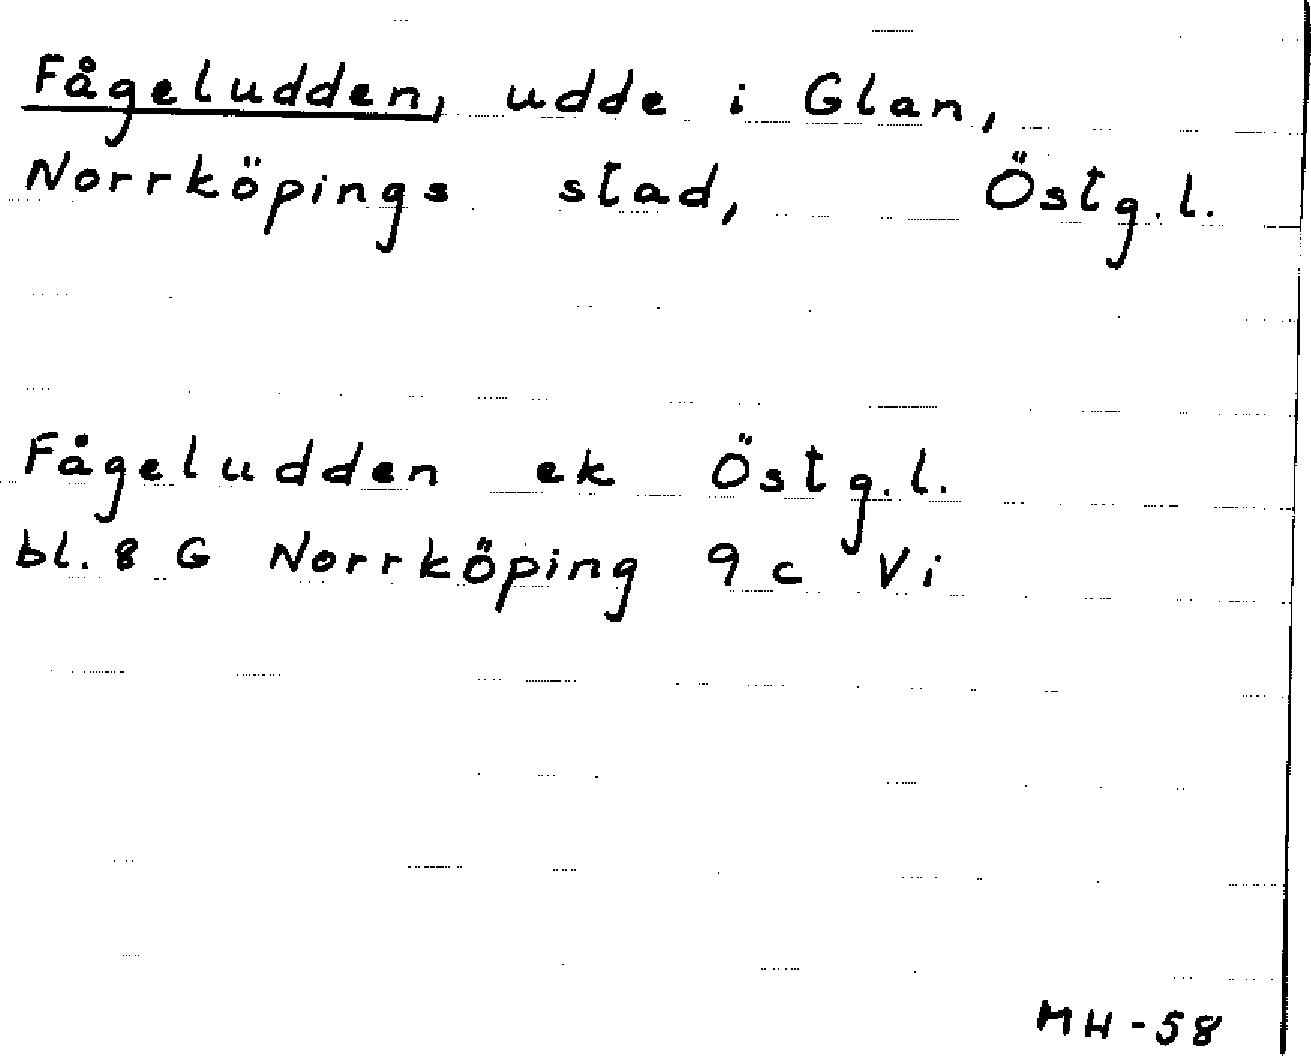 Fågeludden, udde i Glan,
Norrköpings stad, Östg.l.
Fågeludden ek Östg.l.
bl. 8 G Norrköping 9 c Vi
MH-58